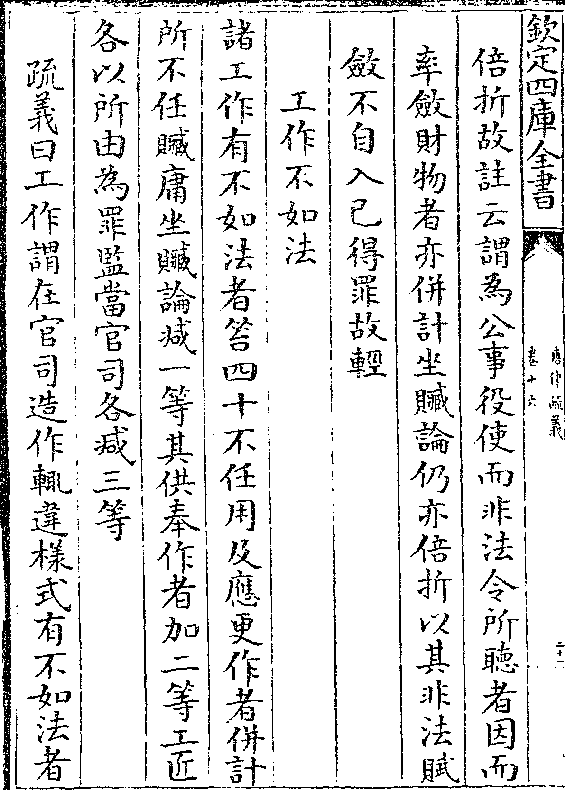 欽定四庫全書
唐律疏義
卷十六
二十二
倍折故註云謂為公事役使而非法令所聽者因而
率斂財物者亦併計坐贓論仍亦倍折以其非法賦
斂不自入己得罪故輕
工作不如法
諸工作有不如法者笞四十不任用及應更作者併計
所不任贓庸坐贓論减一等其供奉作者加二等工匠
各以所由為罪監當官司各减三等
疏義曰工作謂在官司造作輒違樣式有不如法者